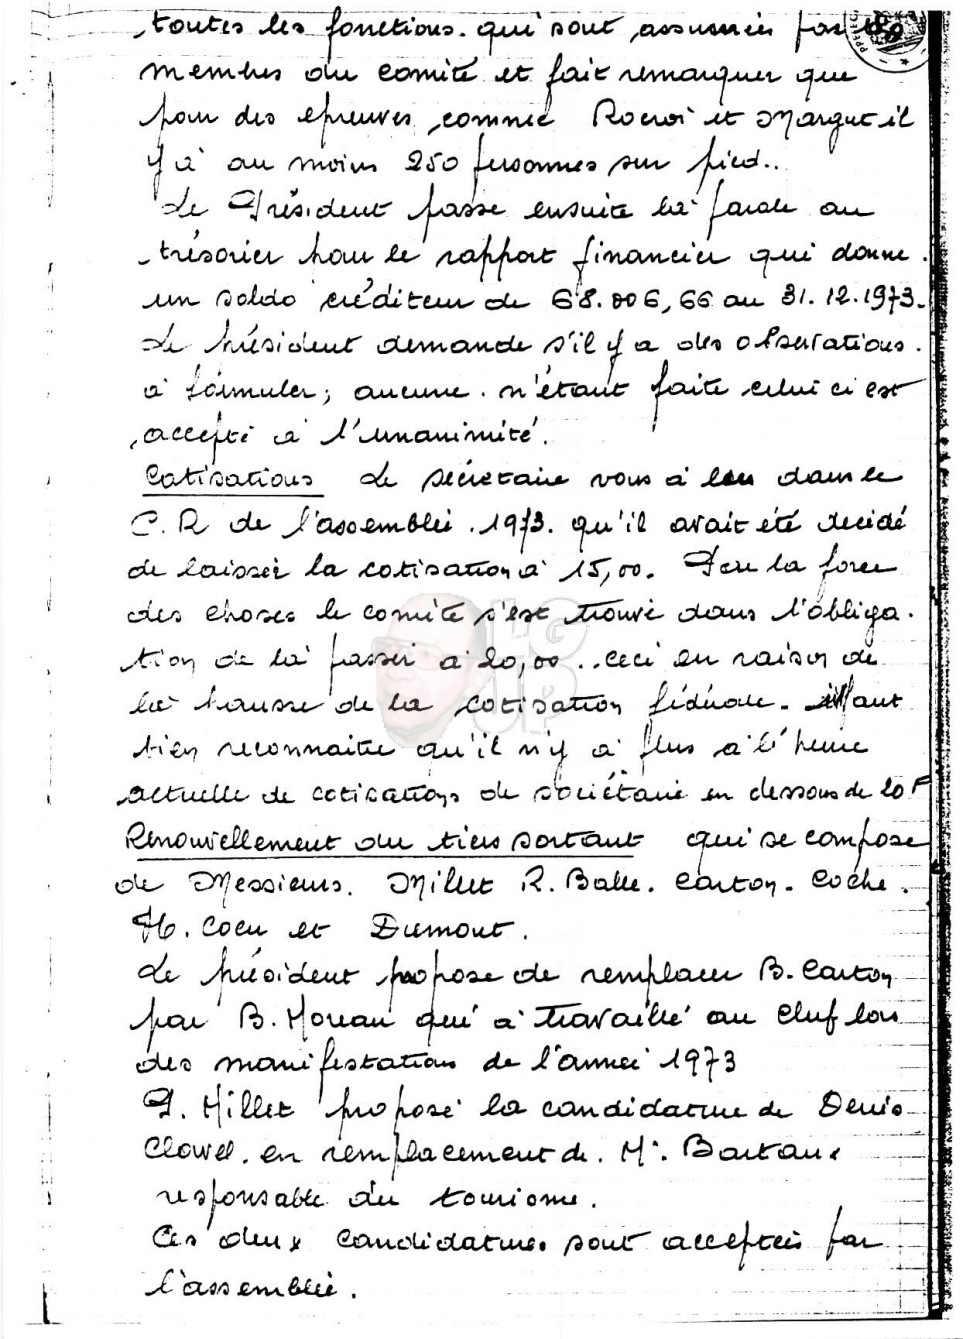 toutes les fonctions qui sont assumées par les
membres du comité et fait remarquer que
pour des épreuves comme Rocroi et Margut il
y a au moins 250 personnes sur pied..
Le Président passe ensuite la parole au
trésorier pour le rapport financier qui donne
un solde créditeur de 68.006,66 au 31.12.1973.
Le président demande s'il y a des observations
à formuler; aucune n'étant faite celui ci est
accepté à l'unanimité.
Cotisations Le secrétaire vous a lu dans le
C.R de l'assemblée 1973. qu'il avait été décidé
de laisser la cotisation à 15,00. Par la force
des choses le comité s'est trouvé dans l'obliga.
tion de la passer à 20,00.. ceci en raison de
la hausse de la cotisation fédérale. il faut
bien reconnaitre qu'il n'y a plus à l'heure
actuelle de cotisations de sociétaire en dessous de 20F
Renouvellement du tiers sortant qui se compose
de Messieurs. Millet R. Balle. Carton. Coche.
H. Coeu et Dumont.
Le président propose de remplacer B. Carton
par B. Moreau qui a travaillé au Club lors
des manifestations de l'année 1973
P. Millet propose la candidature de Denis
Clowel. en remplacement de M<sup>r</sup>.
responsable du tourisme.
Ces deux candidatures sont acceptées par
l'assemblée.
LG
UP